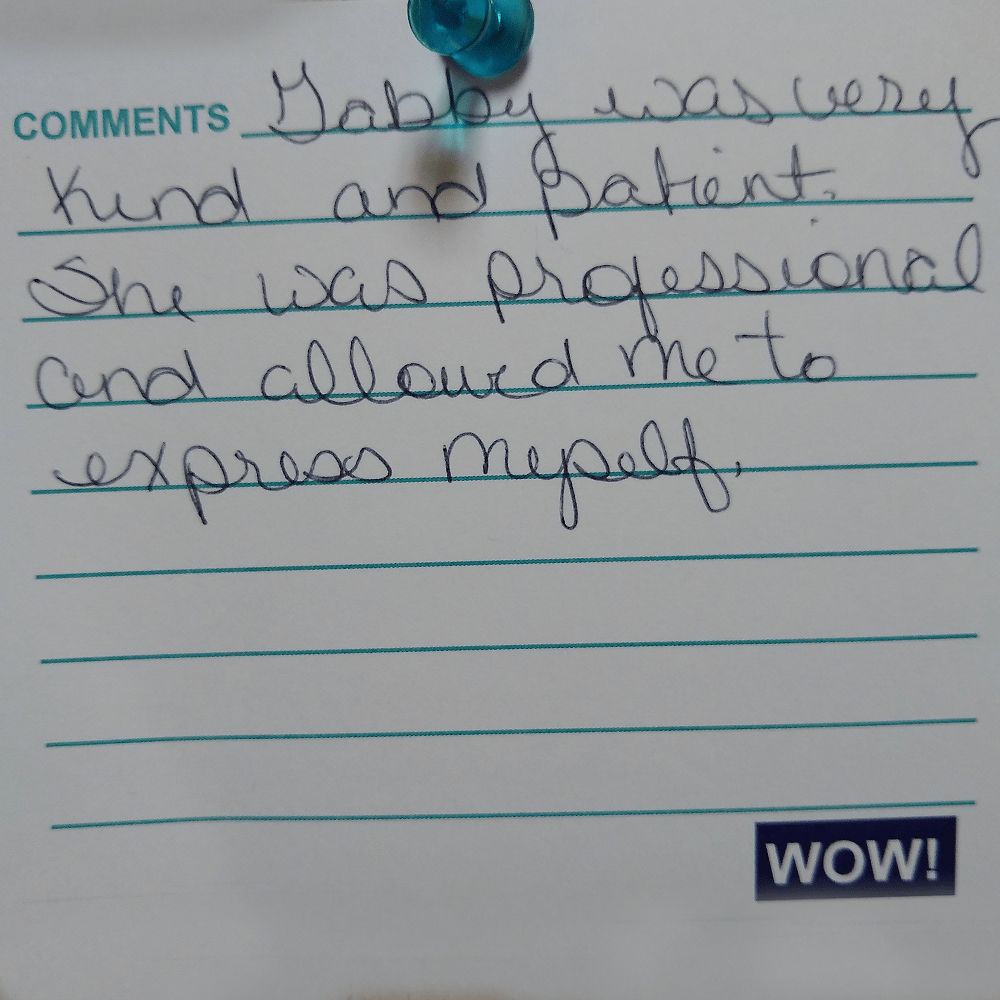 COMMENTS Gabby was very
Kind and patient.
She was professional
and allowed me to
express myself.
WOW!